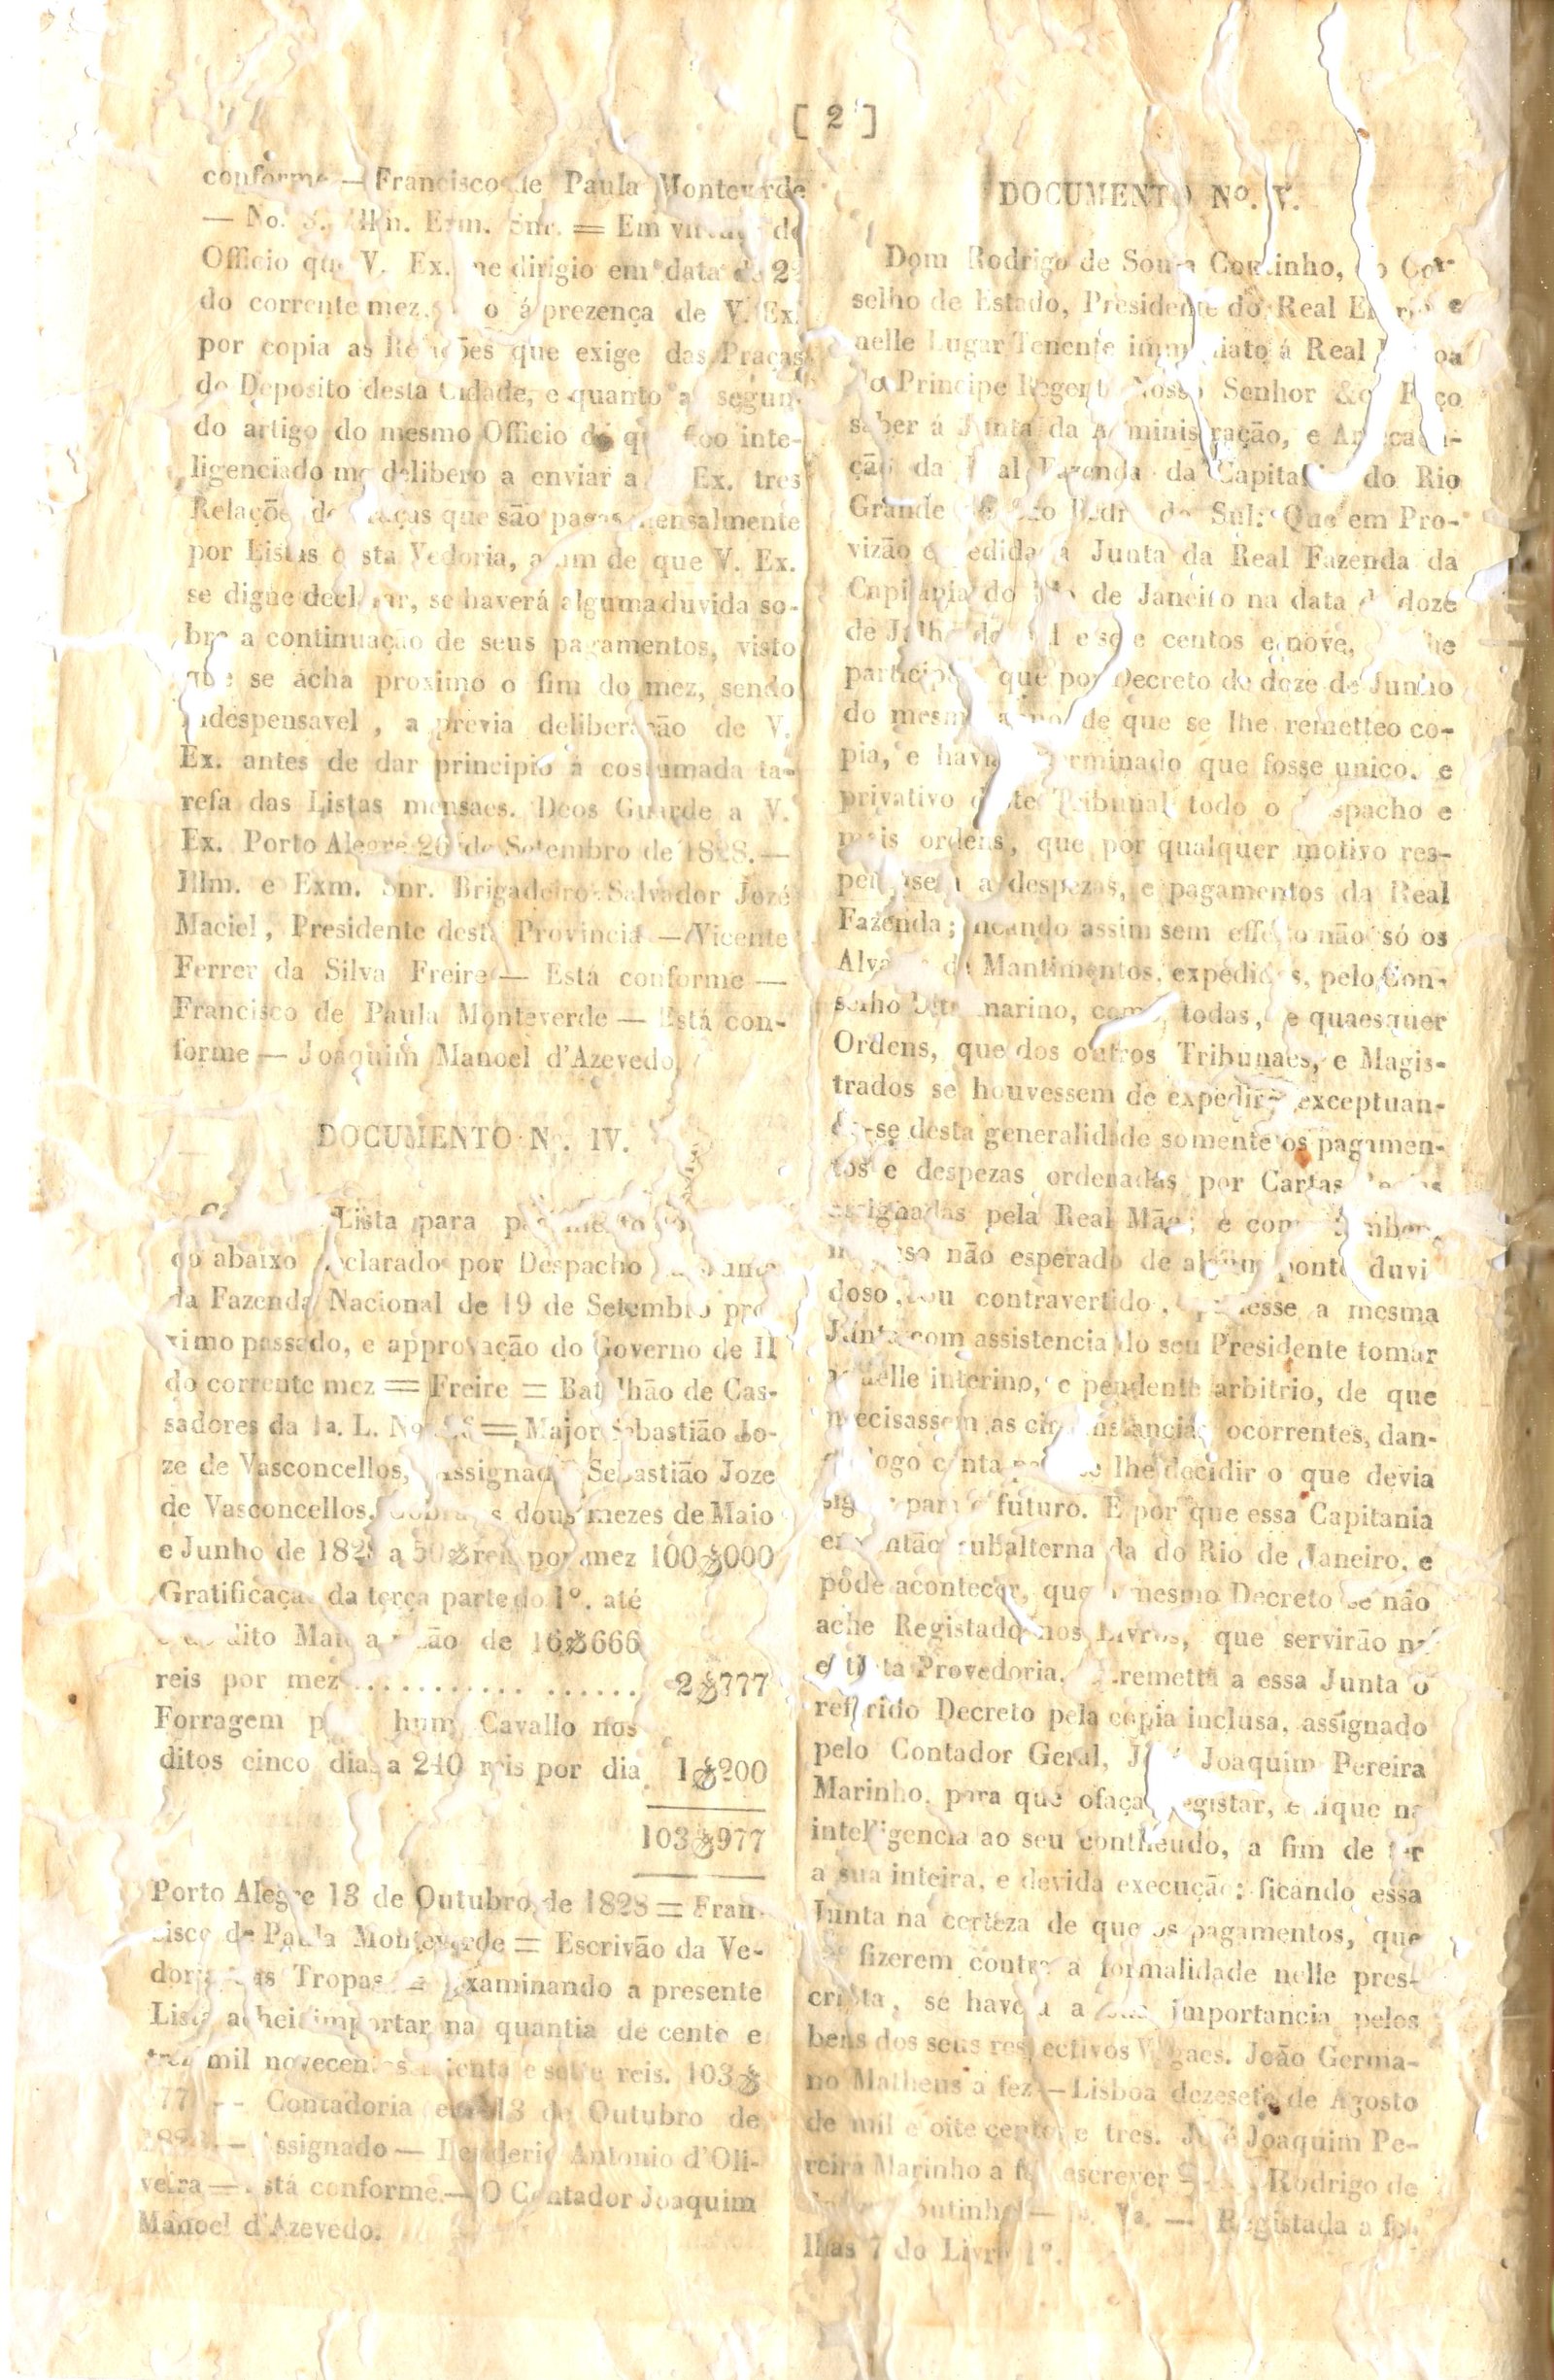 [ 2 ]
conforme — Francisco de Paula Monteverde
— No. Illm. Exm. Snr. = Em de
Officio que V. Ex. me dirigio em data de
do corrente mez, o á prezença de V. Ex.
por copia as Relações que exige das Praças
do Deposito desta Cidade, e quanto ao segun-
do artigo do mesmo Officio de que inte-
ligenciado me delibero a enviar a Ex. tres
Relações de Praças que são pagas mensalmente
por Listas Vedoria, a fim de que V. Ex.
se digne declarar, se haverá alguma duvida so-
bre a continuação de seus pagamentos, visto
que se acha proximo o fim do mez, sendo
indespensavel, a previa deliberação de V.
Ex. antes de dar principio á costumada ta-
refa das Listas mensaes. Deos Guarde a V.
Ex. Porto Alegre 26 de Setembro de 1828. —
Illm. e Exm. Snr. Brigadeiro Salvador Jozé
Maciel, Presidente desta Provincia — Vicente
Ferrer da Silva Freire — Está conforme —
Francisco de Paula Monteverde — Está con-
forme — Joaquim Manoel d'Azevedo.
DOCUMENTO No. IV.
Lista para pagamento
do abaixo declarado por Despacho
da Fazenda Nacional de 19 de Setembro pro-
ximo passado, e approvação do Governo de 11
do corrente mez = Freire = Batalhão de Cas-
sadores da 1a. L. No. = Major Sebastião Jo-
ze de Vasconcellos, assignado Sebastião Joze
de Vasconcellos, dous mezes de Maio
e Junho de 1828 a reis por mez 100$000
Gratificação da terça parte do 1º. até
dito Maio a razão de 16$666
reis por mez .................. 2$777
Forragem para hum Cavallo nos
ditos cinco dias a 240 reis por dia 1$200
103$977
Porto Alegre 13 de Outubro de 1828 = Fran-
cisco de Paula Monteverde = Escrivão da Ve-
doria das Tropas = Examinando a presente
Lista achei importar na quantia de cento e
trez mil novecentos setenta e sete reis. 103$
977 — Contadoria em 13 de Outubro de
1828 — Assignado — Antonio d'Oli-
veira — Está conforme. — O Contador Joaquim
Manoel d'Azevedo.
DOCUMENTO Nº. V.
Dom Rodrigo de Souza Coutinho, do Con-
selho de Estado, Presidente do Real Erario e
nelle Lugar Tenente immediato á Real Pessoa
do Principe Regente Nosso Senhor &c. Faço
saber á Junta da Administração, e Arrecada-
ção da Real Fazenda da Capitania do Rio
Grande de São Pedro do Sul: Que em Pro-
vizão expedida á Junta da Real Fazenda da
Capitania do Rio de Janeiro na data de doze
de Julho de centos e nove,
participou que por Decreto de doze de Junho
do mesmo anno de que se lhe remetteo co-
pia, e havia determinado que fosse unico, e
privativo deste Tribunal todo o Despacho e
mais ordens, que por qualquer motivo res-
peitassem a despezas, e pagamentos da Real
Fazenda; ficando assim sem effeito não só os
Alvarás de Mantimentos, expedidos, pelo Con-
selho Ultramarino, como todas, e quaesquer
Ordens, que dos outros Tribunaes, e Magis-
trados se houvessem de expedir, exceptuan-
do-se desta generalidade somente os pagamen-
tos e despezas ordenadas por Cartas Regias
assignadas pela Real Mão; e com
no caso não esperado de algum ponto duvi
doso, ou contravertido, podesse a mesma
Junta com assistencia do seu Presidente tomar
aquelle interino, e pendente arbitrio, de que
precisassem as circunstancias ocorrentes, dan-
do logo conta para se lhe decidir o que devia
para o futuro. E por que essa Capitania
era então subalterna da do Rio de Janeiro, e
póde acontecer, que o mesmo Decreto se não
ache Registado nos Livros, que servirão na
Provedoria, remetta a essa Junta o
referido Decreto pela copia inclusa, assignado
pelo Contador Geral, José Joaquim Pereira
Marinho, para que ofaça Registar, e fique na
intelligencia ao seu contheudo, a fim de ter
a sua inteira, e devida execução: ficando essa
Junta na certeza de que os pagamentos, que
se fizerem contra a formalidade nelle pres-
cripta, se haverá a sua importancia pelos
bens dos seus respectivos Vogaes. João Germa-
no Matheus a fez — Lisboa dezesete de Agosto
de mil e oite centos e tres. José Joaquim Pe-
reira Marinho a fez escrever — Rodrigo de
Coutinho — Registada a fo-
lhas 7 do Livro 1º.